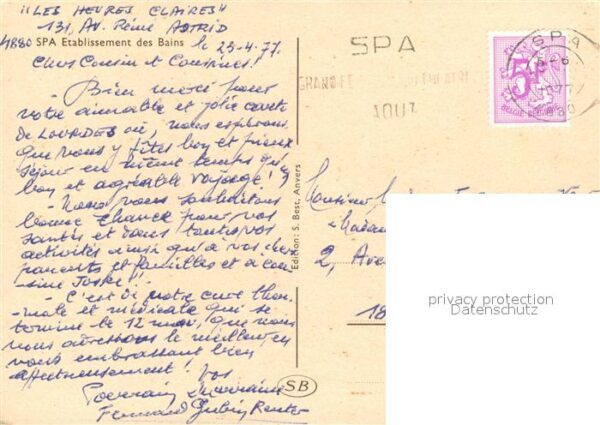 "LES HEURES CLAIRES"
131, AV. Reine ASTRID
4880 SPA Etablissement des Bains le 23-4-77.
Chers Cousin et Cousines!
- Bien merci pour
votre aimable et jolie carte
de LOURDES où, nous espérons
que vous y fîtes bon et pieux
séjour en même temps qu'un
bon et agréable voyage!
- Nous vous souhaitons
bonne chance pour vos
santés et dans toutes vos
activités ainsi qu'à vos chers
parents et familles et à cou-
sine
- C'est de notre cure ther-
male et médicale qui se
termine le 12 mai, que nous
vous adressons le meilleur en
vous embrassant bien
affectueusement! Vos
Parrain Marraine
Fernand
SPA
AOUT
SPA
5F
BELGIE BELGIQUE
Edition: S. Best, Anvers
Monsieur
2, Ave
18
SB
privacy protection
Datenschutz